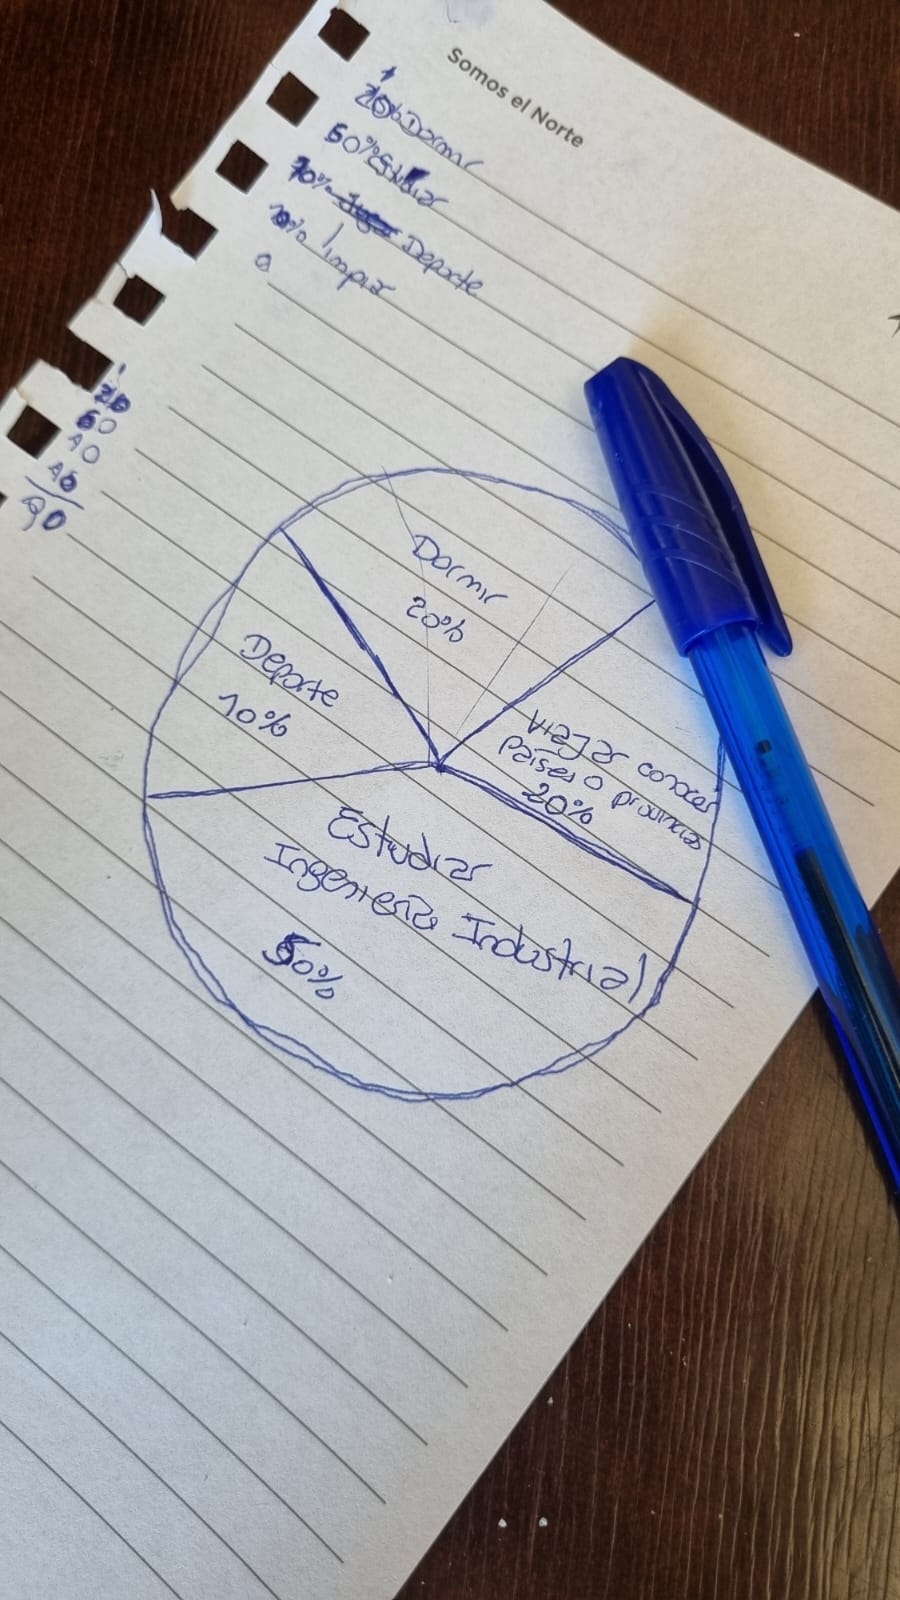 Somos el Norte
20% Dormir
50% Estudiar
10% Deporte
10% limpiar
20
60
10
10
90
Dormir
20%
Deporte
10%
Viajar conocer
países o provincias
20%
Estudiar
Ingeniería Industrial
50%